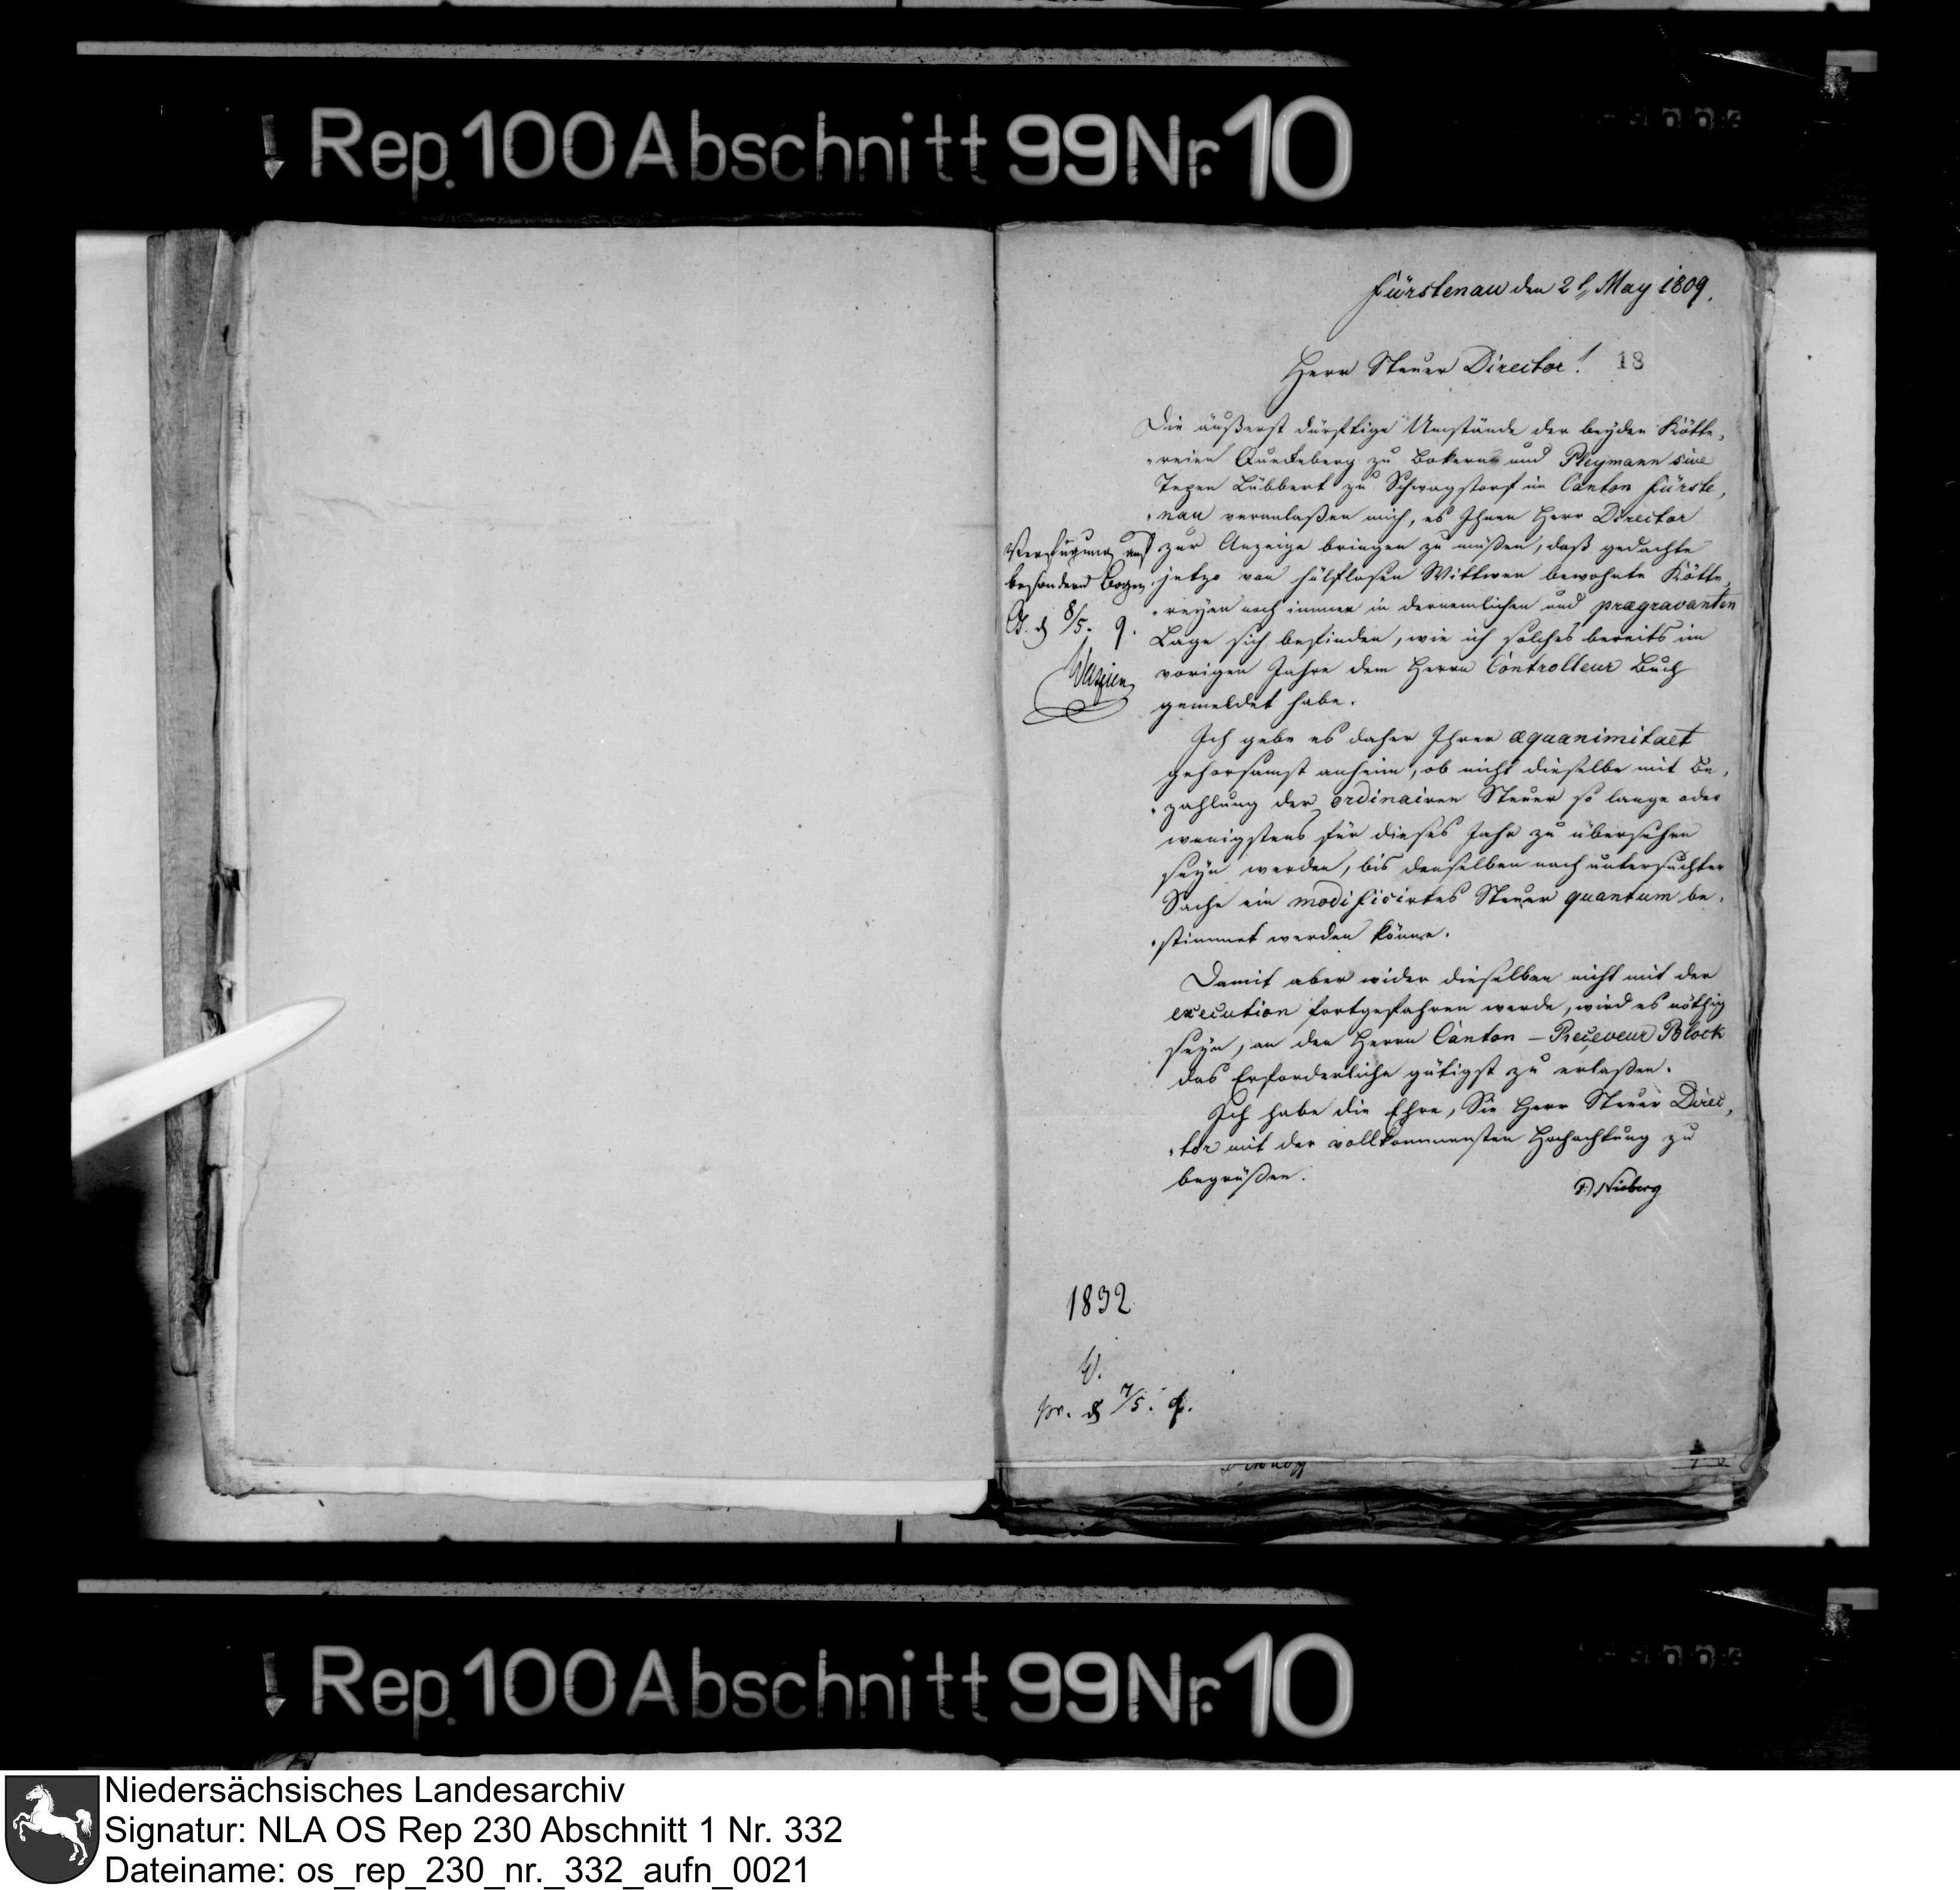 Rep. 100 Abschnitt 99 Nr. 10
Fürstenau den 2t May 1809.
Herr Steuer Director! 18
Die äußerst dürftige Umstände der beyden Kötte,
„reien Queckeberg zu Bokern und Pleymann sive
Tepen Lübbert zu Schwagstorf im Canton Fürste,
„nau veranlaßen mich, es Ihnen Herr Director
zur Anzeige bringen zu müßen, daß gedachte
jetzo von hülflosen Wittwen bewohnte Kötte,
„reyen noch immer in dernemlichen und praegravanten
Lage sich befinden, wie ich solches bereits im
vorigen Jahre dem Herrn Controlleur Buch
gemeldet habe.
Verfügung auf
besondern Bogen.
O. d 8/5. 9.
Ich gebe es daher Ihrer aequanimitaet
gehorsamst anheim, ob nicht dieselbe mit Be,
„zahlung der ordinairen Steuer so lange oder
wenigstens für dieses Jahr zu übersehen
seyn werden, bis denselben nach untersuchter
Sache ein modificirtes Steuer quantum be,
„stimmet werden könne.
Damit aber wider dieselben nicht mit der
execution fortgefahren werde, wird es nöthig
seyn, an den Herrn Canton – Receveur Block
das Erforderliche gütigst zu erlaßen.
Ich habe die Ehre, Sie Herr Steuer Direc,
„tor mit der vollkommensten Hochachtung zu
begrüßen.
Nieberg
1832
pr. d 7/5. 9.
Rep. 100 Abschnitt 99 Nr. 10
Niedersächsisches Landesarchiv
Signatur: NLA OS Rep 230 Abschnitt 1 Nr. 332
Dateiname: os_rep_230_nr._332_aufn_0021